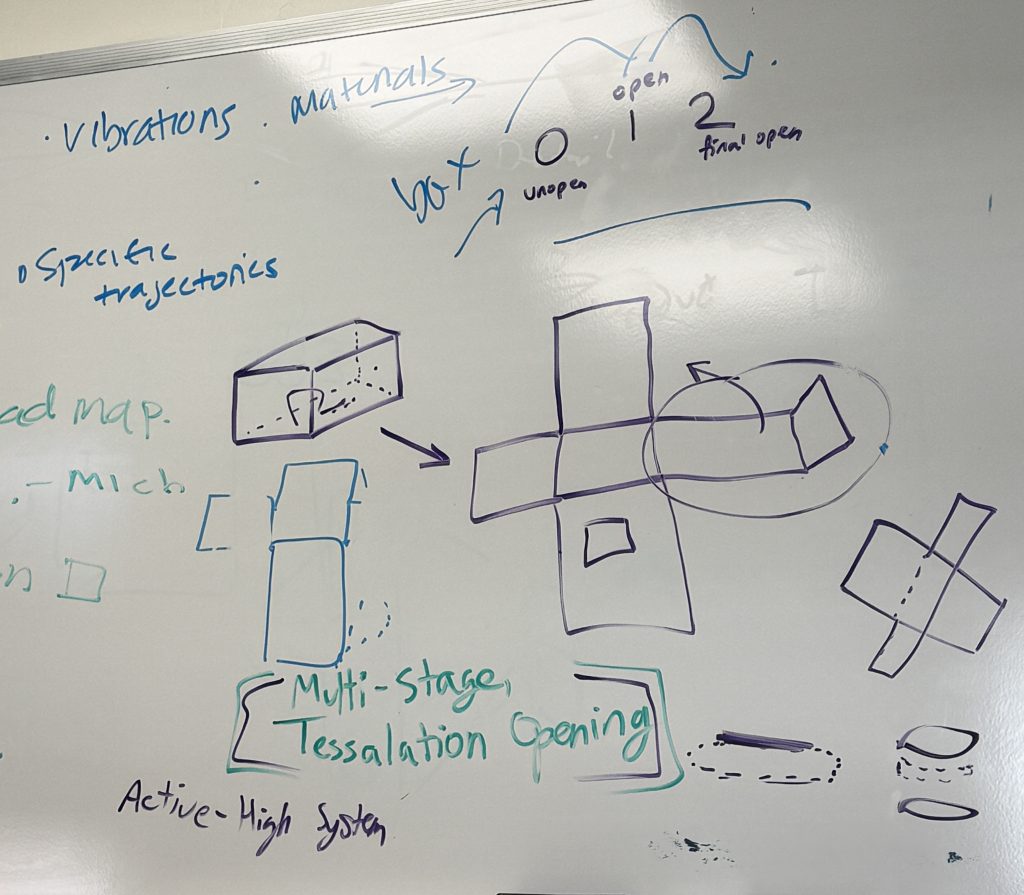 · vibrations · materials
open
0 1 2
unopen final open
box
· Specific
trajectories
ad map.
- Mich
Multi-stage,
Tessalation Opening
Active-High System